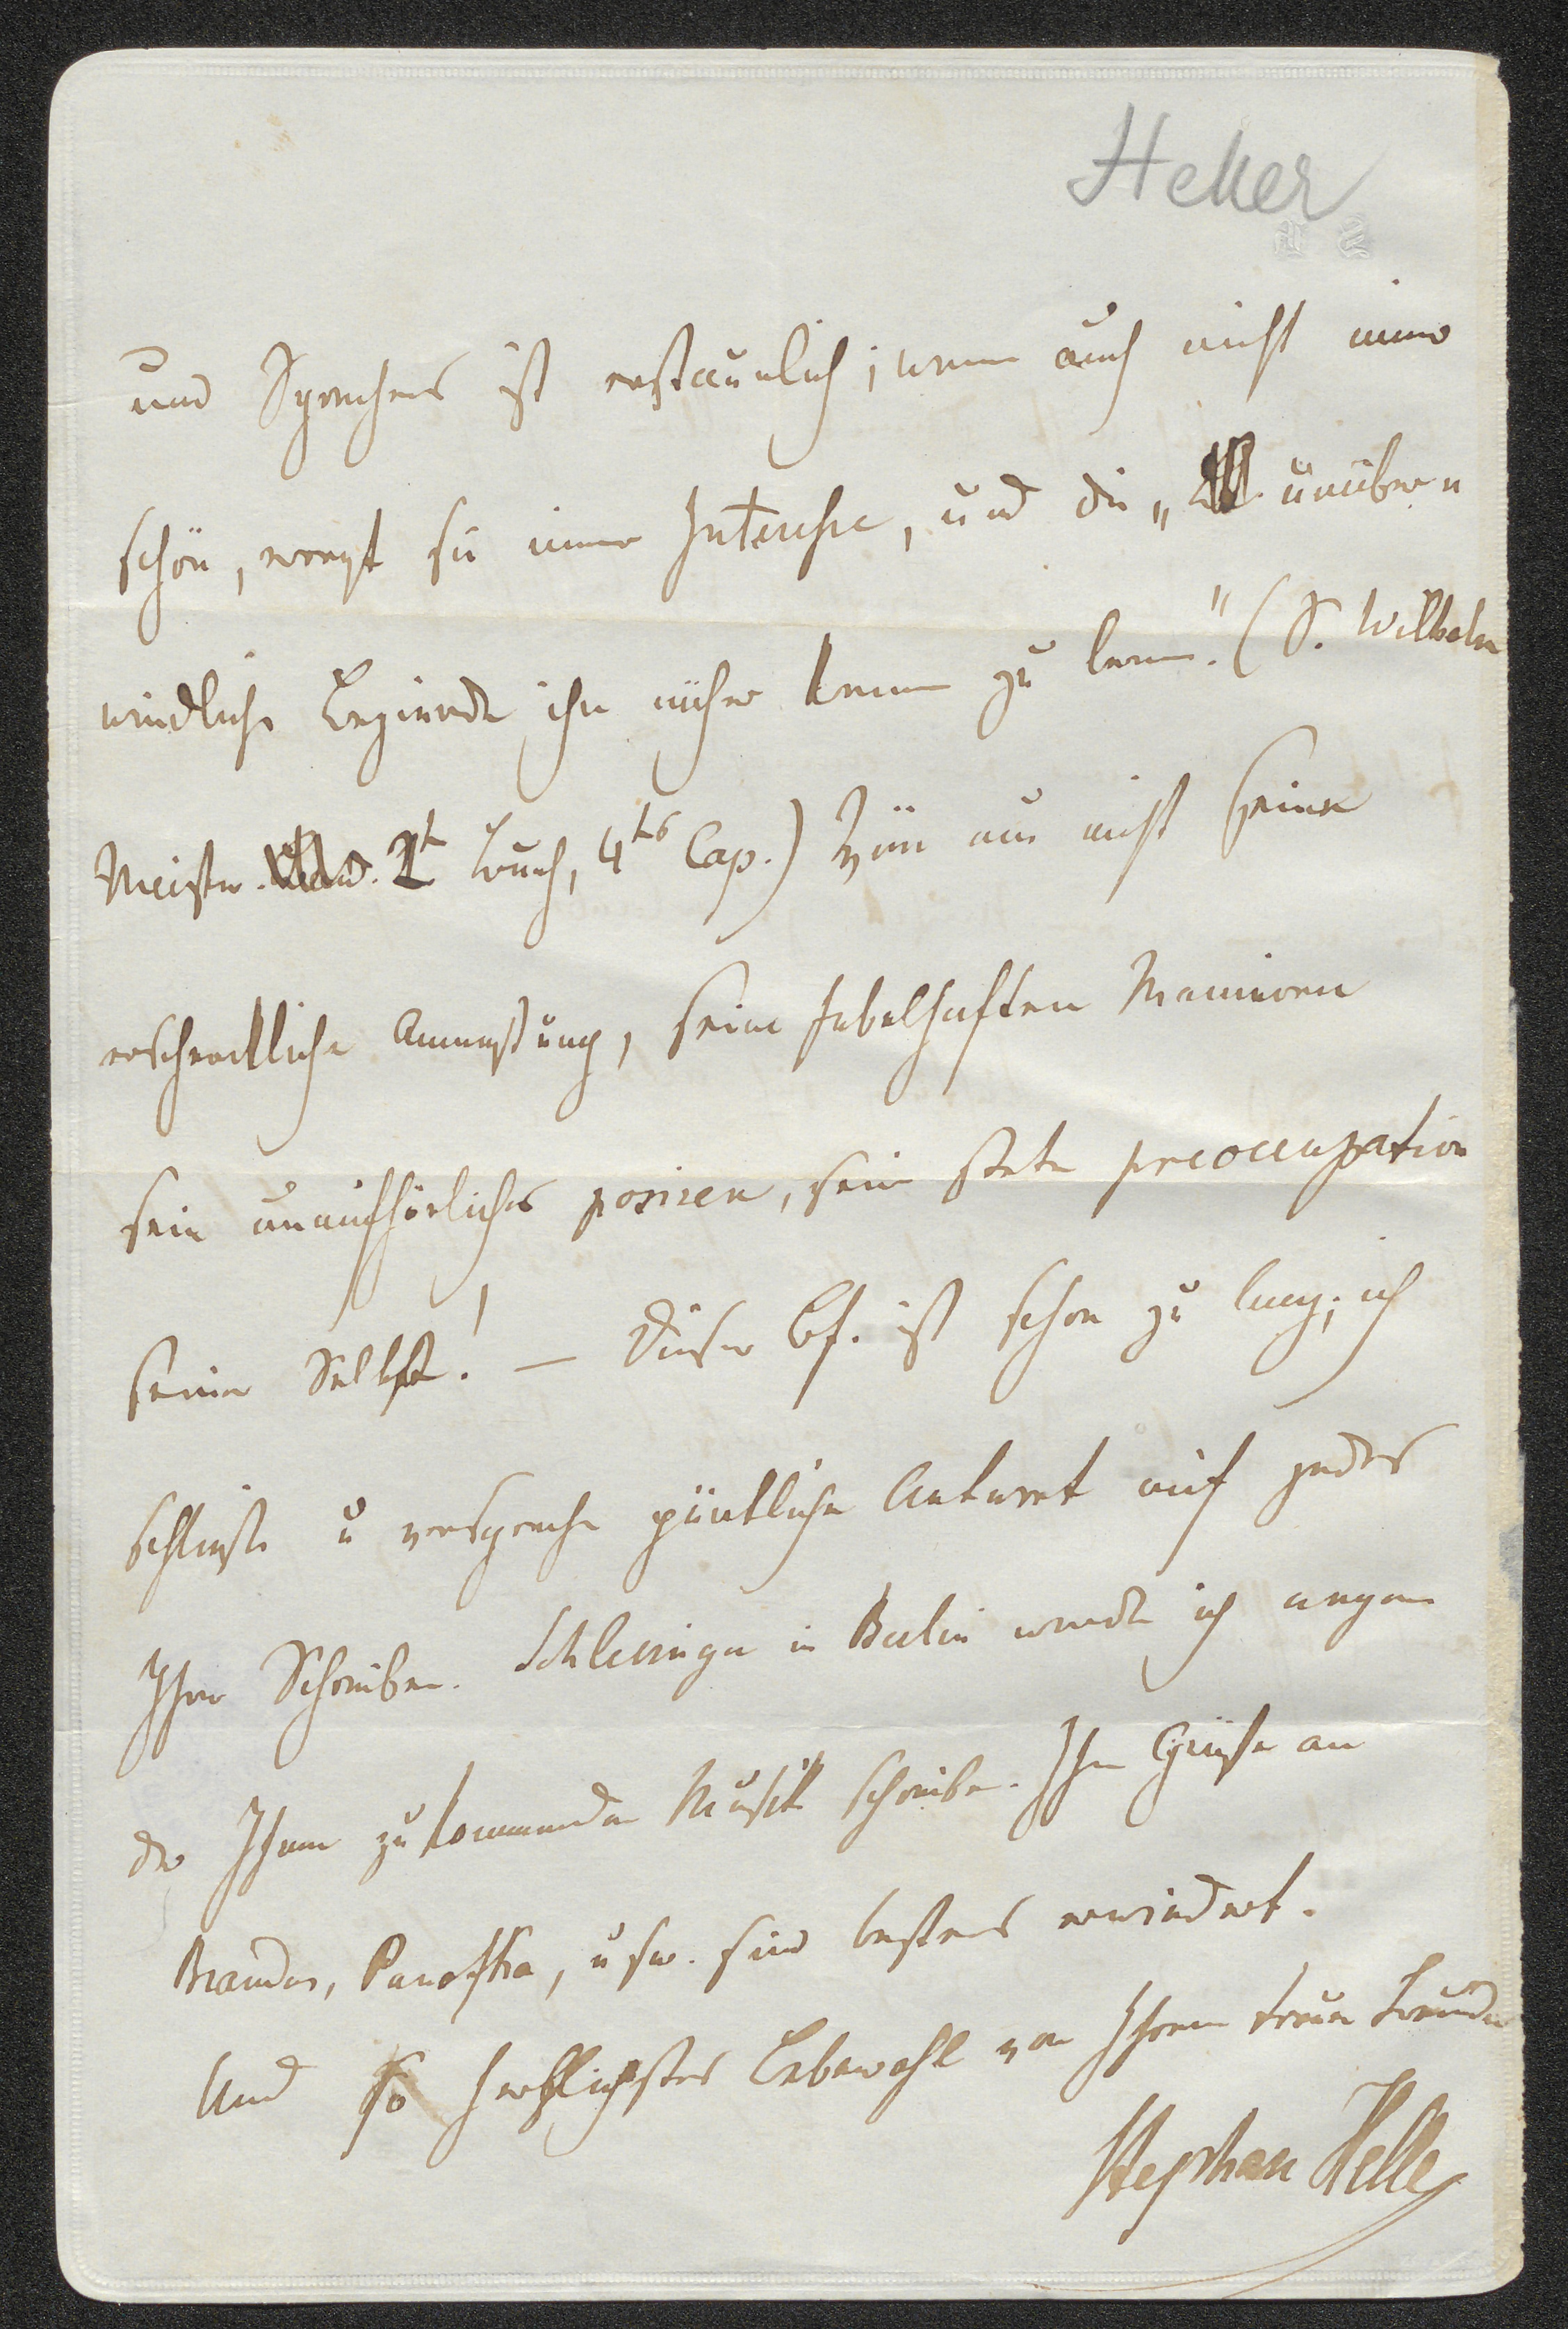 Heller
und Sprechens ist erstaunlich; wenn auch nicht immer
schön, erregt sie immer Interesse, und die „unüber„
windliche Begierde ihn näher kennen zu lernen." (S. Wilhelm
Meister. 2t Buch, 4tes Cap.) Zum nur nicht seine
erschreckliche Anmaßung, seine fabelhaften Manieren
sein unaufhörliches posiren, seine stete preoccupation
seiner Selbst! — Dieser Bf. ist schon zu lang; ich
schließe u verspreche pünktliche Antwort auf jedes
Ihrer Schreiben. Schlesinger in Berlin werde ich wegen
der Ihnen zukommenden Musik schreiben. Ihre Grüße an
Brandus, Panofka, usw. sind bestens erwiedert.
Und so herzlichstes Lebewohl von Ihrem treuen Freunde
Stephen Heller